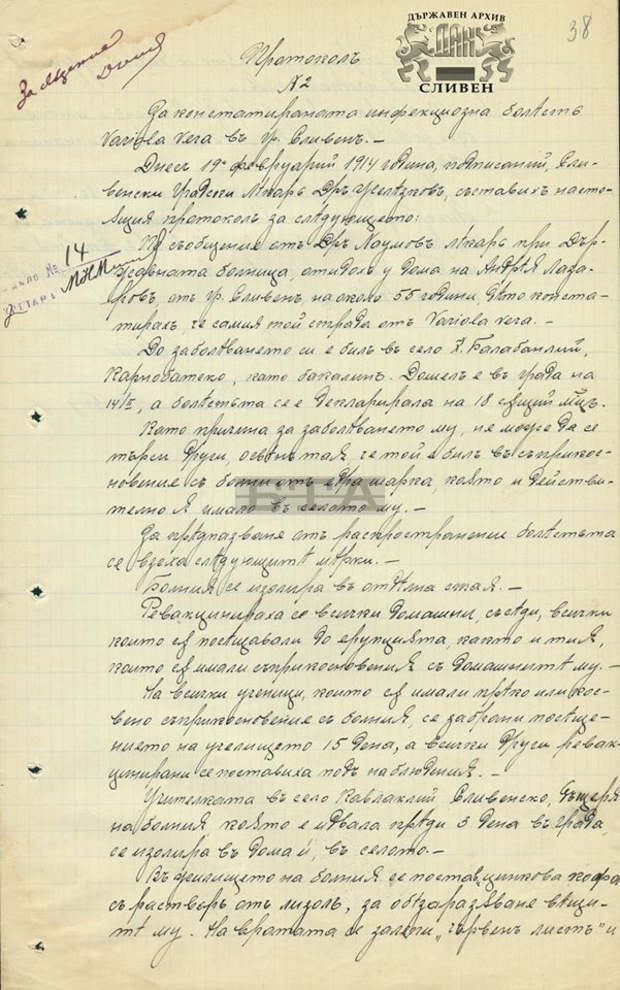 ДЪРЖАВЕН АРХИВ
ДАК
СЛИВЕН
38
Протоколъ
№ 2
За констатираната инфекциозна болѣсть
Variola vera въ гр. Сливенъ. —
Днесъ 19й февруарий 1914 година, подписаний, Сли-
венски Градски Лѣкарь Дръ сьставихъ насто-
ящия протоколъ за слѣдующето:
По съобщение отъ Дръ Наумовъ лѣкарь при Дър-
жавната болница, отидохъ у дома на Андрея Лаза-
ровъ, отъ гр. Сливенъ, на около 55 години, дѣто конста-
тирахъ, че самия той страда отъ Variola vera. —
До заболѣването си е билъ въ село Х. Балабанлий,
Карнобатско, като бакалинъ. Дошелъ е въ града на
14/II, а болѣстьта се е декларирала на 18 сящий мѣц.
Като причина за заболѣването му, не може да се
търси друга, освѣнъ тая, че той е билъ въ съприкос-
новение съ болни отъ една шарка, която и действи-
телно я имало въ селото му. —
БТА
За прѣдпазване отъ распространение болѣстьта
се взеха слѣдующитѣ мѣрки. —
Болния се изолира въ отдѣлна стая. —
Реваксинираха се всички домашни, съседи, всички
които сѫ посещавали до ерупцията, както и тия,
които сѫ имали съприкосновения съ домашнитѣ му. —
На всички ученици, които сѫ имали прѣко или кос-
вено съприкосновение съ болния, се забрани посеще-
нието на училището 15 дена, а всички други ревак-
цинирани се поставиха подъ наблюдения. —
Учителката въ село Кавлаклий, Сливенско, дъщеря
на болния, която е идвала прѣди 3 дена въ града,
се изолира въ дома ѝ, въ селото. —
Въ жилището на болния се постави цинкова кофа
съ растворъ отъ лизолъ, за обѣззаразяване вѣщи-
тѣ му. На вратата се залепи „червенъ листъ" и
14